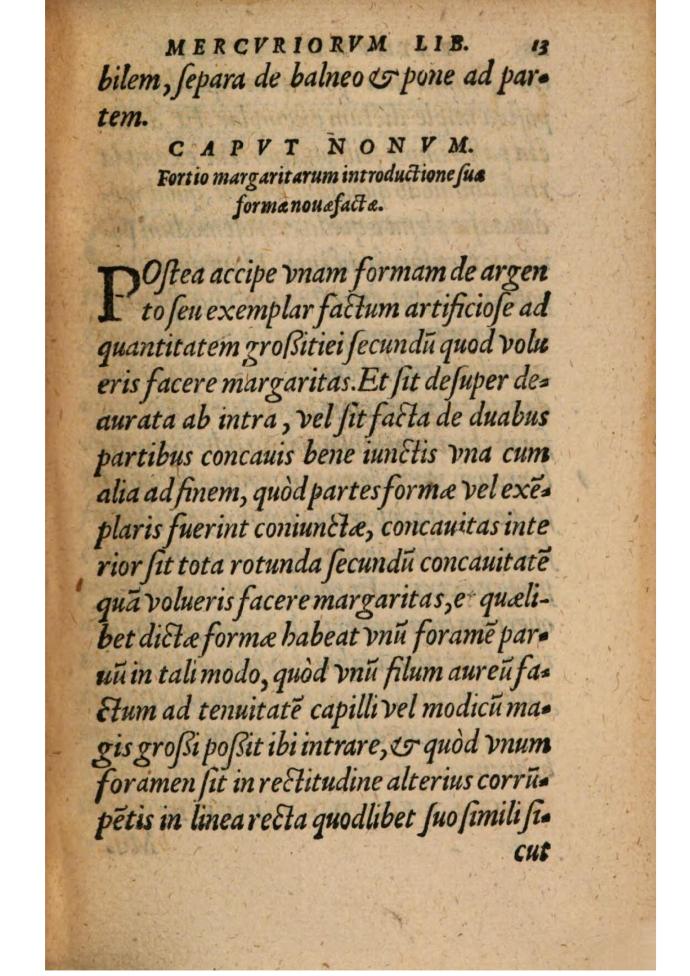 MERCVRIORVM LIB. 13
bilem, ſepara de balneo & pone ad par-
tem.
CAPVT NONVM.
Fortio margaritarum introductione ſua
formæ nouæ factæ.
POſtea accipe vnam formam de argen
to ſeu exemplar factum artificioſe ad
quantitatem groſſitiei ſecundū quod volu
eris facere margaritas. Et ſit deſuper de-
aurata ab intra, vel ſit facta de duabus
partibus concauis bene iunctis vna cum
alia ad finem, quòd partes formæ vel exē-
plaris fuerint coniunctæ, concauitas inte
rior ſit tota rotunda ſecundū concauitatē
quā volueris facere margaritas, e quæli-
bet dictæ formæ habeat vnū foramē par-
uū in tali modo, quòd vnū filum aureū fa-
ctum ad tenuitatē capilli vel modicū ma-
gis groſſi poſſit ibi intrare, & quòd vnum
foramen ſit in rectitudine alterius corrū-
pētis in linea recta quodlibet ſuo ſimili ſi-
cut